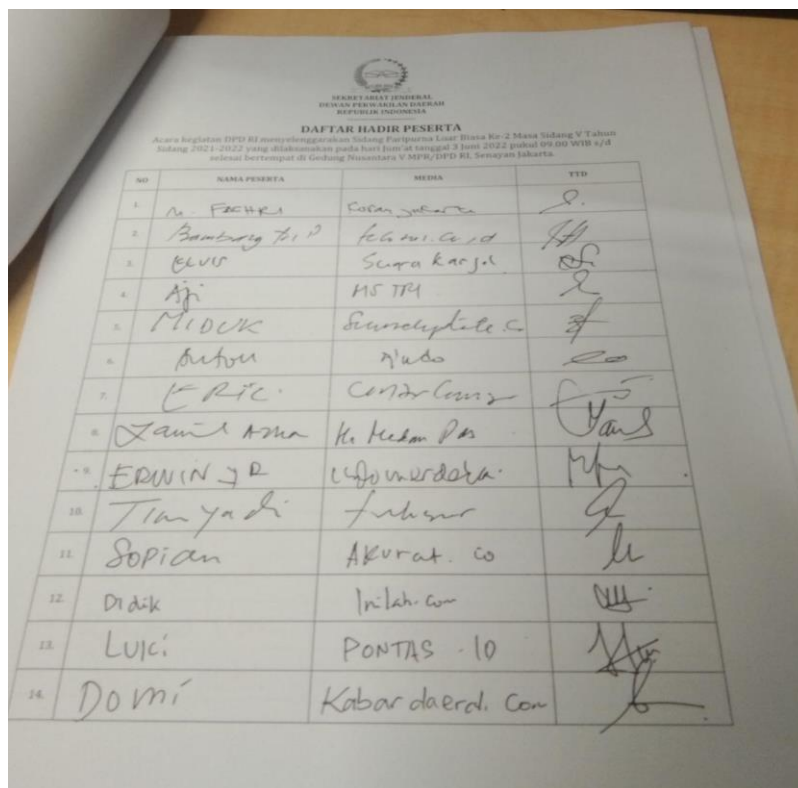 SEKRETARIAT JENDERAL
DEWAN PERWAKILAN DAERAH
REPUBLIK INDONESIA
DAFTAR HADIR PESERTA
Acara kegiatan DPD RI menyelenggarakan Sidang Paripurna Luar Biasa Ke-2 Masa Sidang V Tahun
Sidang 2021-2022 yang dilaksanakan pada hari Jum'at tanggal 3 Juni 2022 pukul 09.00 WIB s/d
selesai bertempat di Gedung Nusantara V MPR/DPD RI, Senayan Jakarta
NO NAMA PESERTA MEDIA TTD
1. M. FACHRI Koran Jakarta
2. Bambang Tri P
3. ELVIS Suara Karya
4. Aji
5. MIDUK
6. Anton
7. ERIC
8. Zamil Azma Hr Medan Pos
9. ERWIN
10.
11. Sopian AKurat. co
12. Didik Inilah.com
13. LUKi PONTAS .ID
14. Domi Kabar daerah. Com